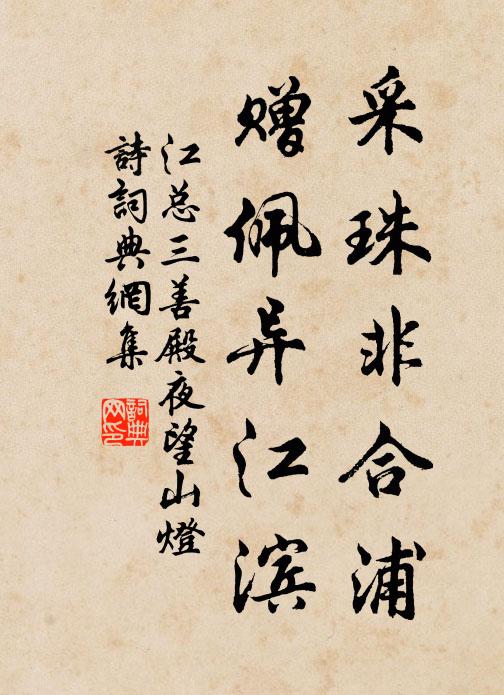 采珠非合浦
赠佩异江滨
江总三善殿夜望山燈
詩詞典網集
詞典网印